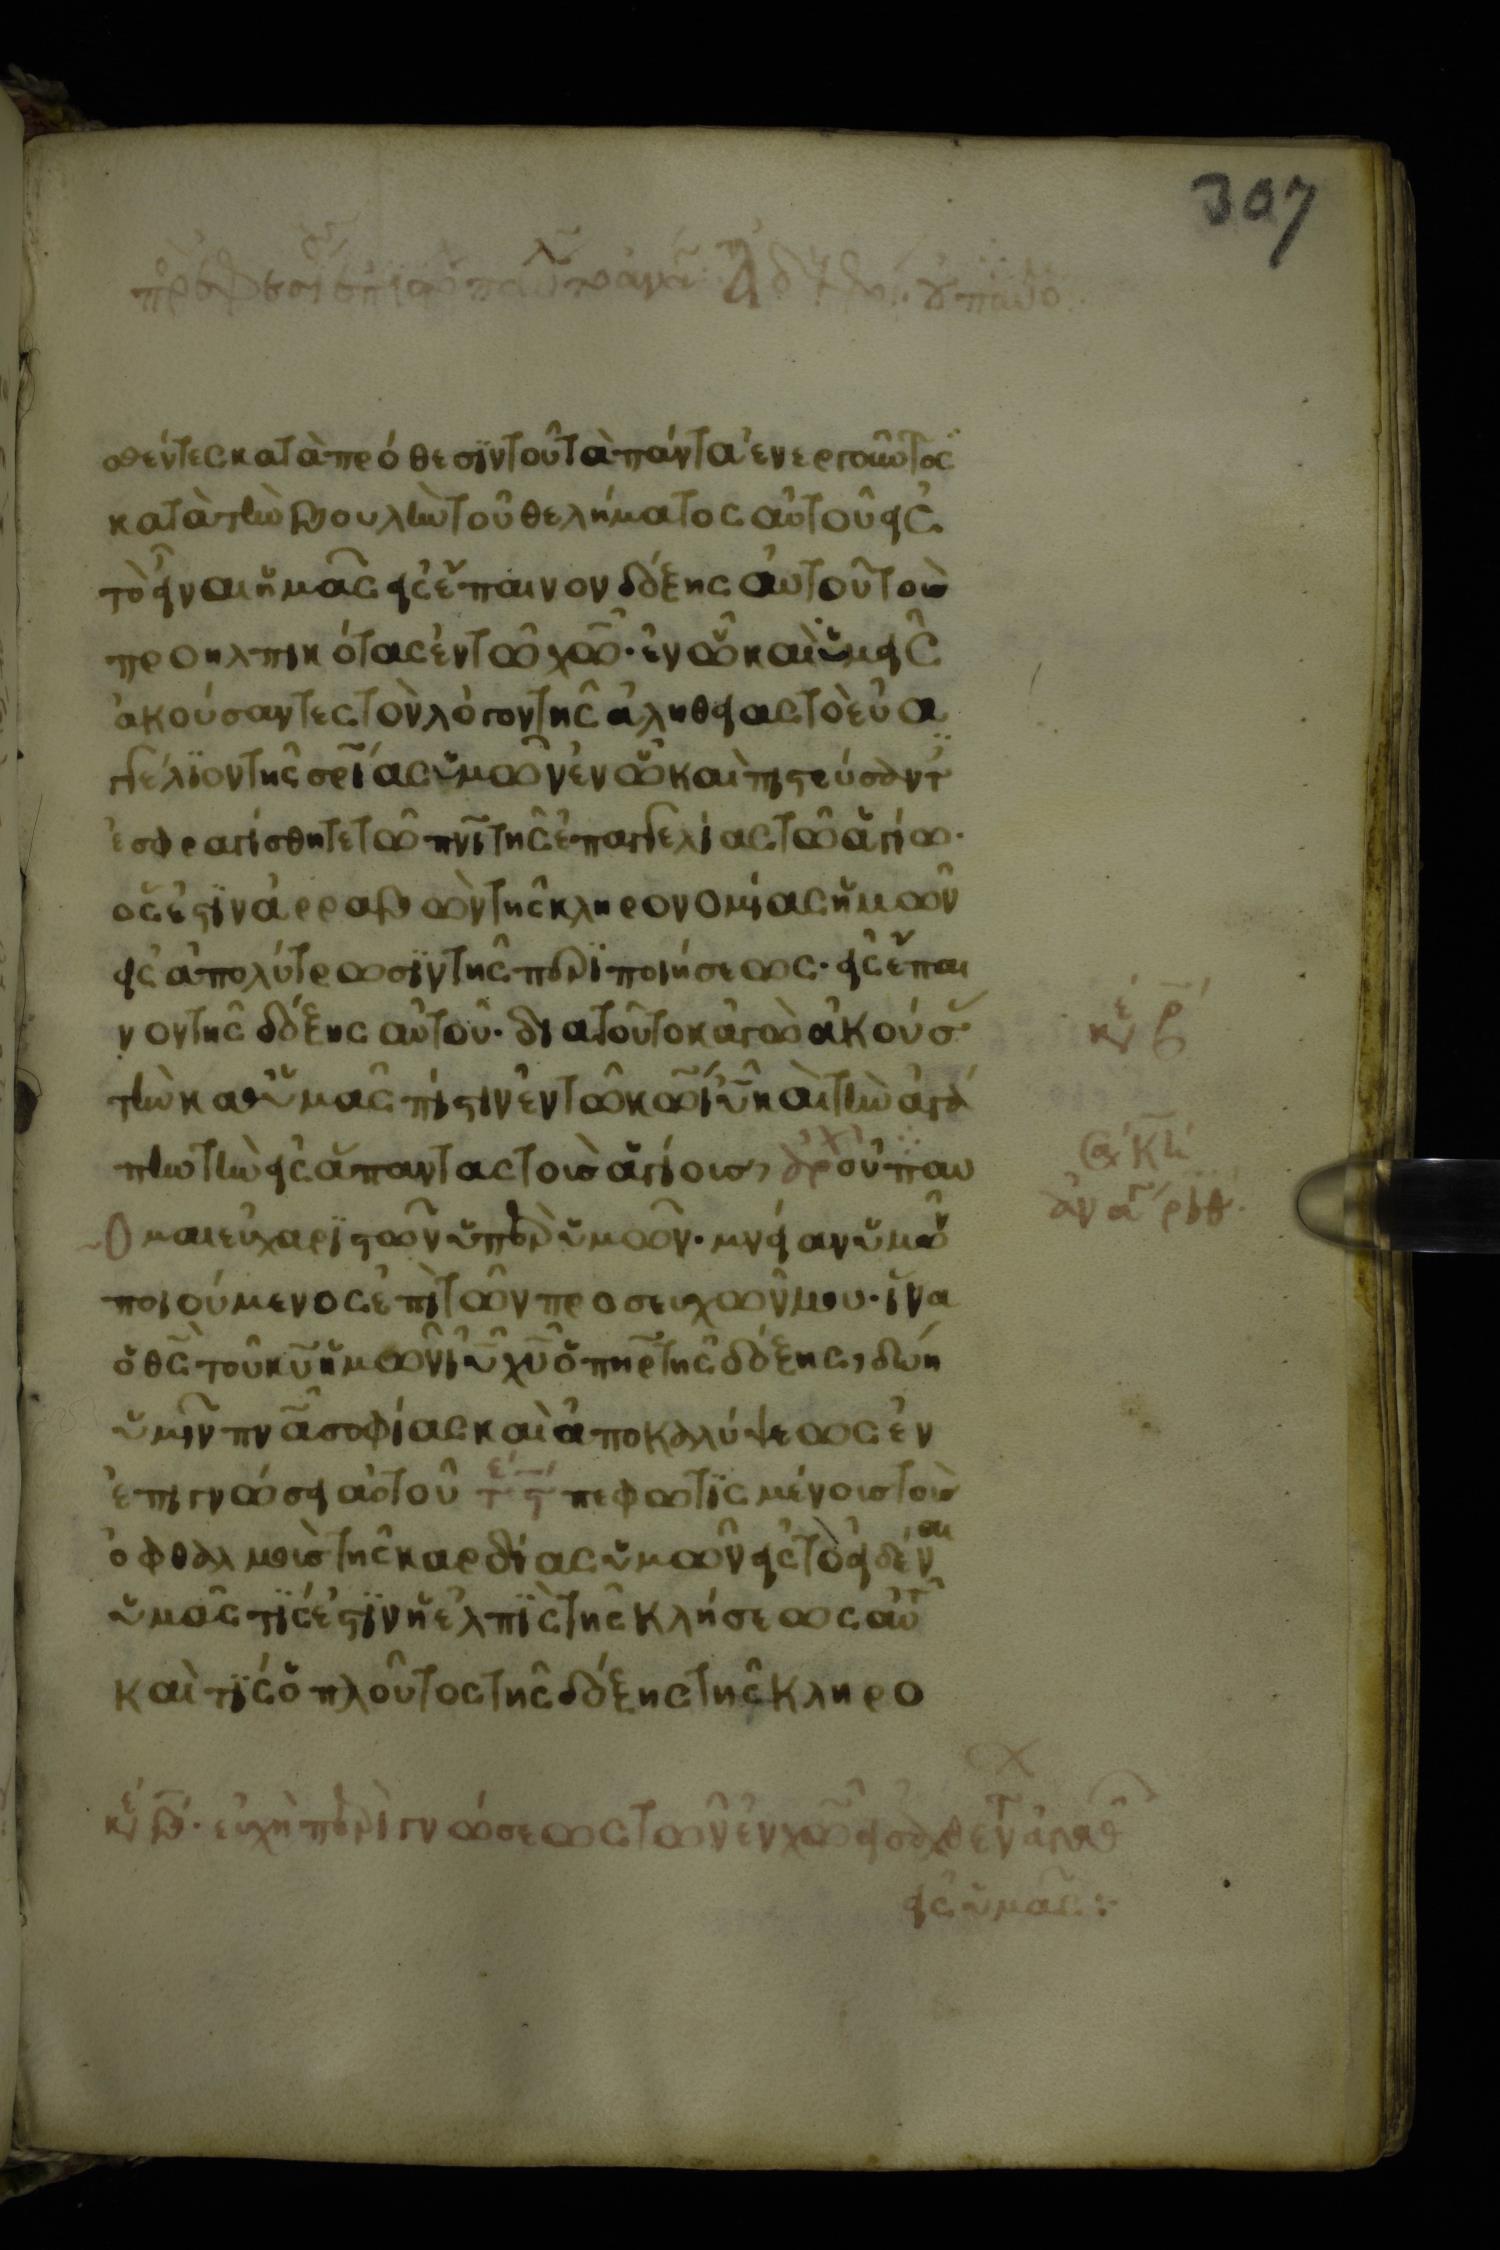 307
σθέντες κατὰ πρόθεσϊν τοῦ τὰ πάντα ἐνεργοῦντος
κατὰ τὴν βουλὴν τοῦ θελήματος αὐτοῦ εἰς
τὸ εἶναι ἡμᾶς εἰς ἔπαινον δόξης αὐτοῦ τοὺς
προηλπικότας ἐν τῶ χῶ· ἐν ὧ καὶ ὑμεῖς
ἀκούσαντες τὸν λόγον τῆς ἀληθείας τὸ εὐα
γγέλϊον τῆς σρίας ὑμῶν ἐν ὧ καὶ πιστεύσαντ
ἐσφραγίσθητε τῶ πνι τῆς ἐπαγγελίας τῶ ἁγίω·
ὅς ἐστϊν ἀρραβὼν τῆς κληρονομίας ἡμῶν
εἰς ἀπολύτρωσϊν τῆς περϊποιήσεως· εἰς ἔπαι
νον τῆς δόξης αὐτοῦ· διατοῦτο κἀγὼ ἀκούσ
τὴν καθ' ὑμᾶς πίστιν ἐν τῶ κω ιυ καὶ τὴν ἀγά
πην τὴν εἰς ἅπαντας τοὺς ἁγίους, οὐ παύ
Ομαι εὐχαρϊστῶν ὑπὲρ ὑμῶν· μνείαν ὑμῶ
ποιούμενος ἐπὶ τῶν προσευχῶν μου· ἵνα
ὁ θς τοῦ κυ ἡμῶν ιυ χυ ὁ πηρ τῆς δόξης, δώη
ὑμῖν πνα σοφίας καὶ ἀποκαλύψεως ἐν
ἐπιγνώσει αὐτοῦ πεφωτϊσμένους τοὺς
ὀφθαλμοὺς τῆς καρδίας ὑμῶν εἰς τὸ εἰδέναι
ὑμᾶς τϊς ἐστϊν ἡ ἐλπὶς τῆς κλήσεως αὐτ
καὶ τϊς ὁ πλοῦτος τῆς δόξης τῆς κληρο
κε β· εὐχὴ περὶ γνώσεως τῶν ἐν χω
εἰς ὑμᾶς: